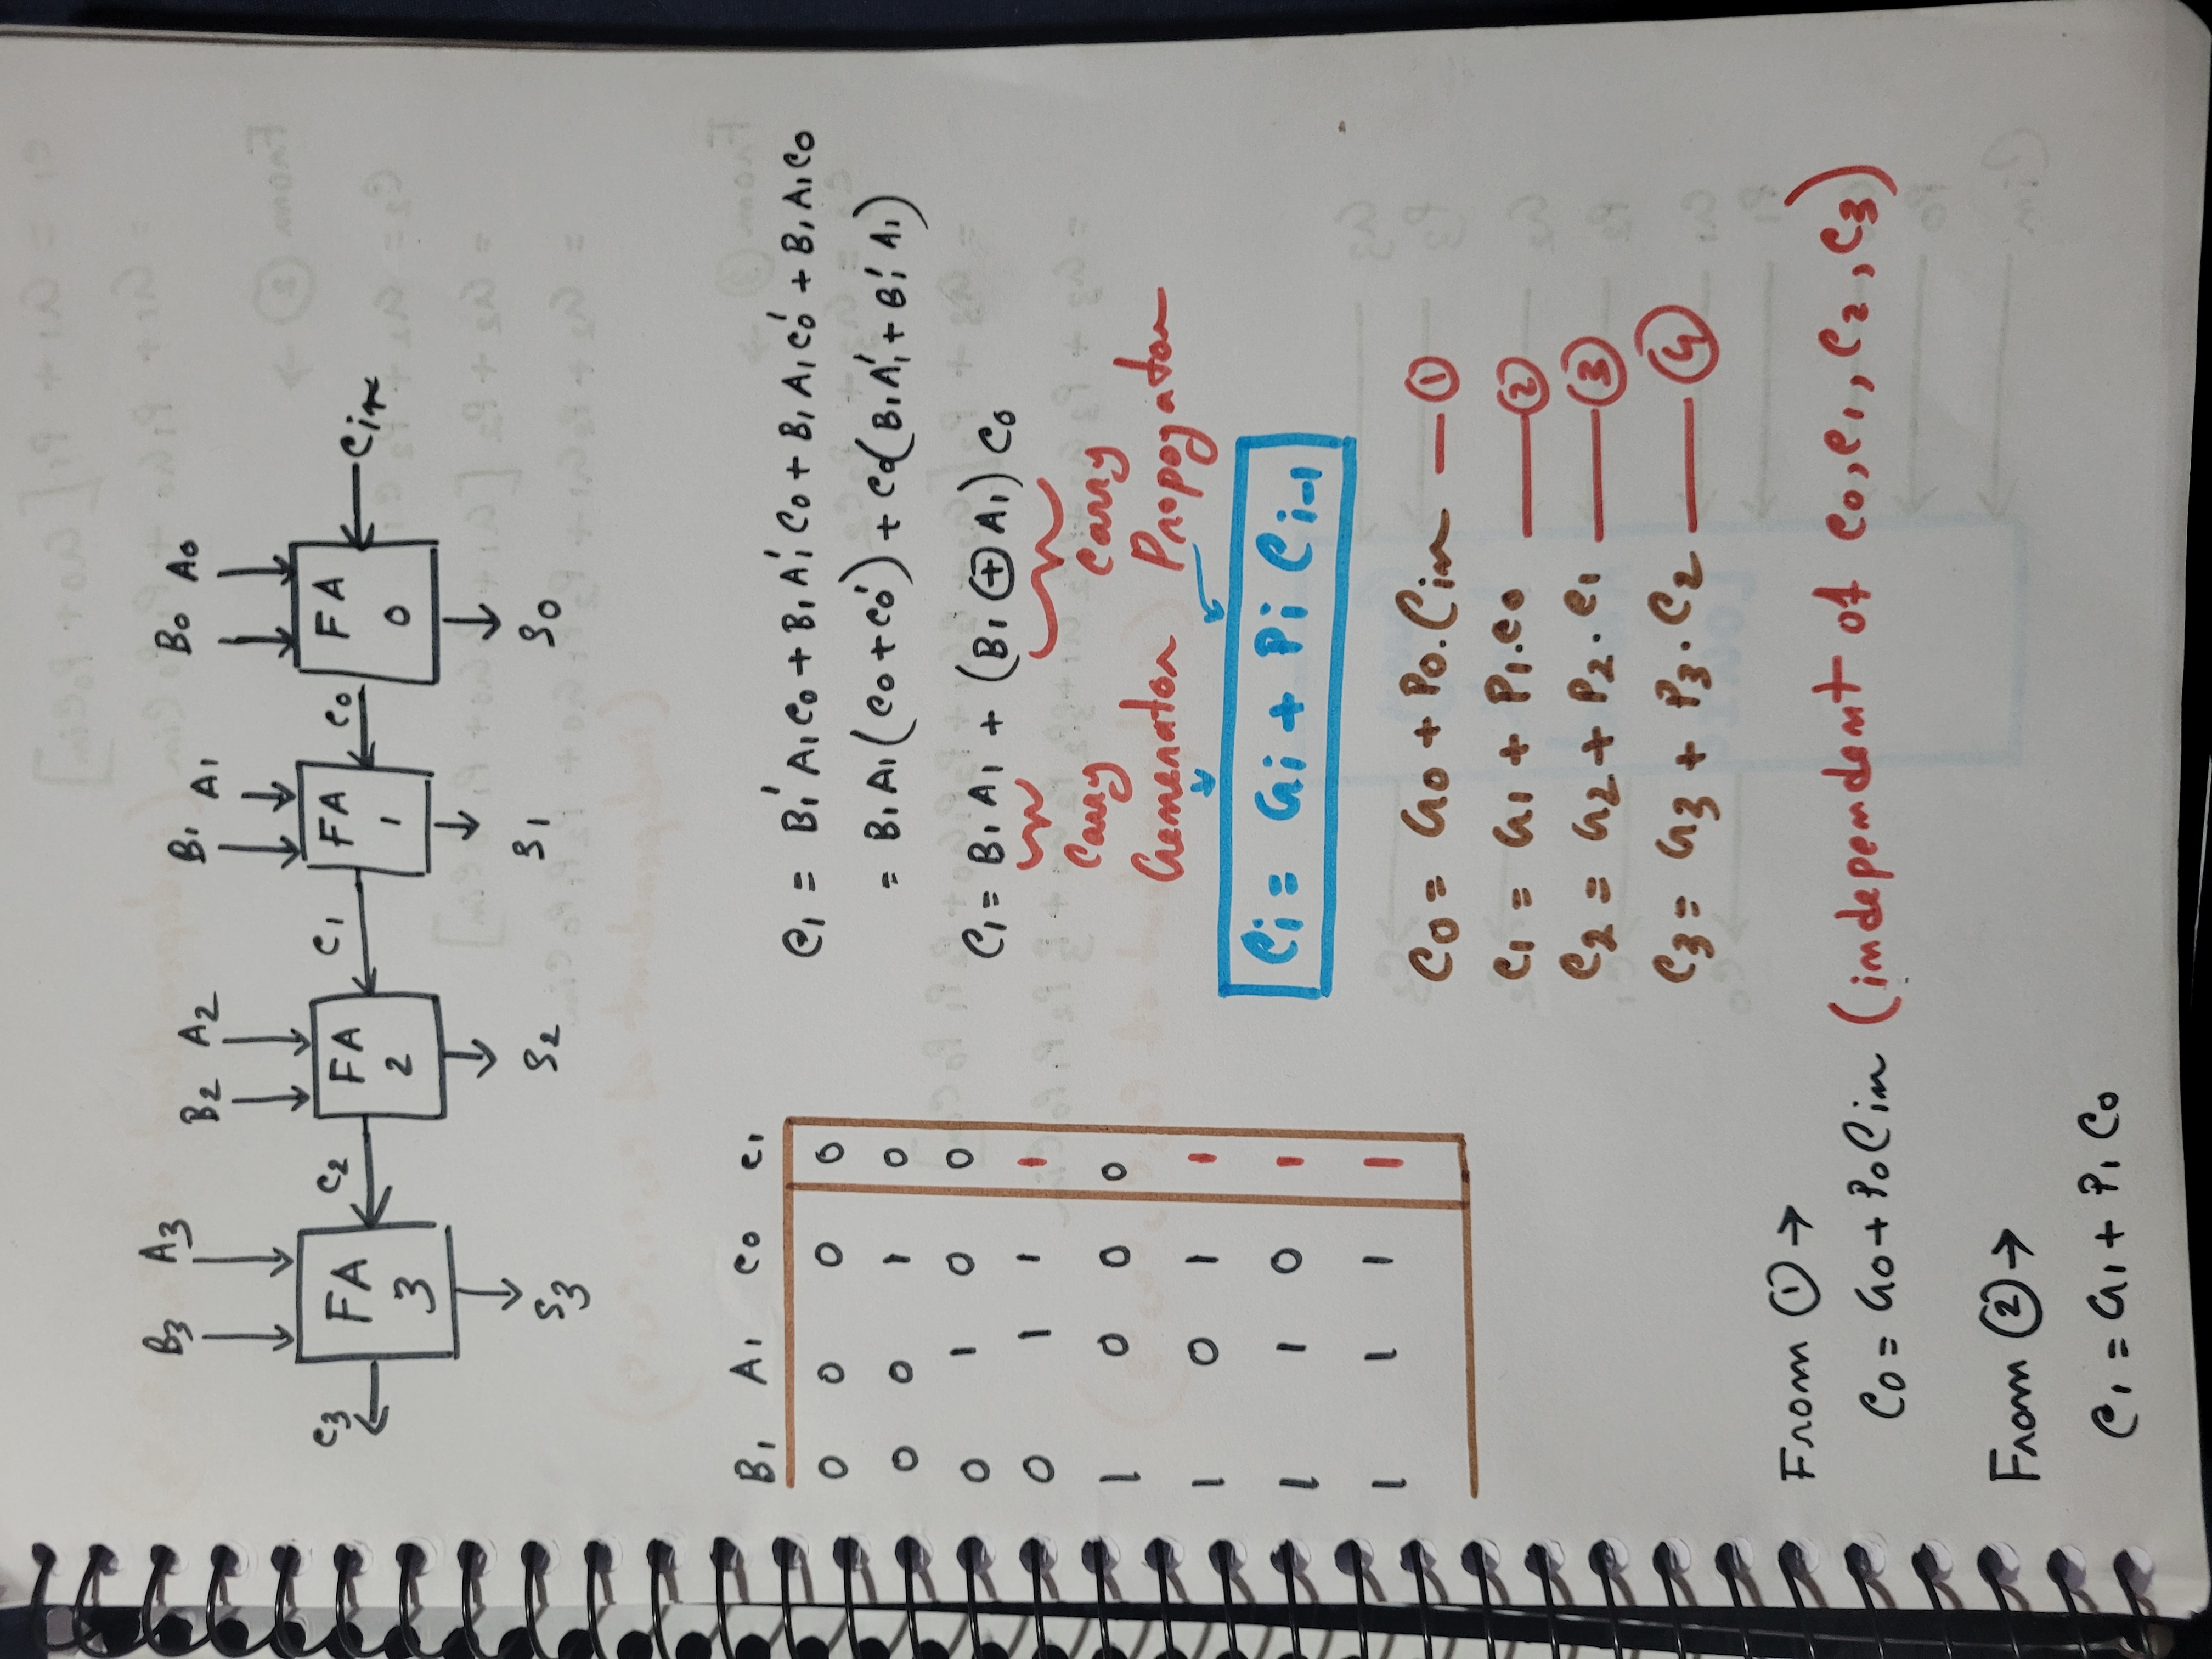 B3 A3 B2 A2 B1 A1 B0 A0
C3 FA 3 C2 FA 2 C1 FA 1 C0 FA 0 Cin
S3 S2 S1 S0
B1 A1 C0 C1
0 0 0 0
0 0 1 0
0 1 0 0
0 1 1 1
1 0 0 0
1 0 1 1
1 1 0 1
1 1 1 1
C1 = B1' A1 C0 + B1 A1' C0 + B1 A1 C0' + B1 A1 C0
= B1 A1 (C0 + C0') + C0(B1 A1' + B1' A1)
C1 = B1 A1 + (B1 ⊕ A1) C0
Carry Generator
Carry Propogator
Ci = Gi + Pi Ci-1
C0 = G0 + P0.Cin — ①
C1 = G1 + P1.C0 — ②
C2 = G2 + P2.C1 — ③
C3 = G3 + P3.C2 — ④
From ① →
C0 = G0 + P0 Cin (independent of C0, C1, C2, C3)
From ② →
C1 = G1 + P1 C0